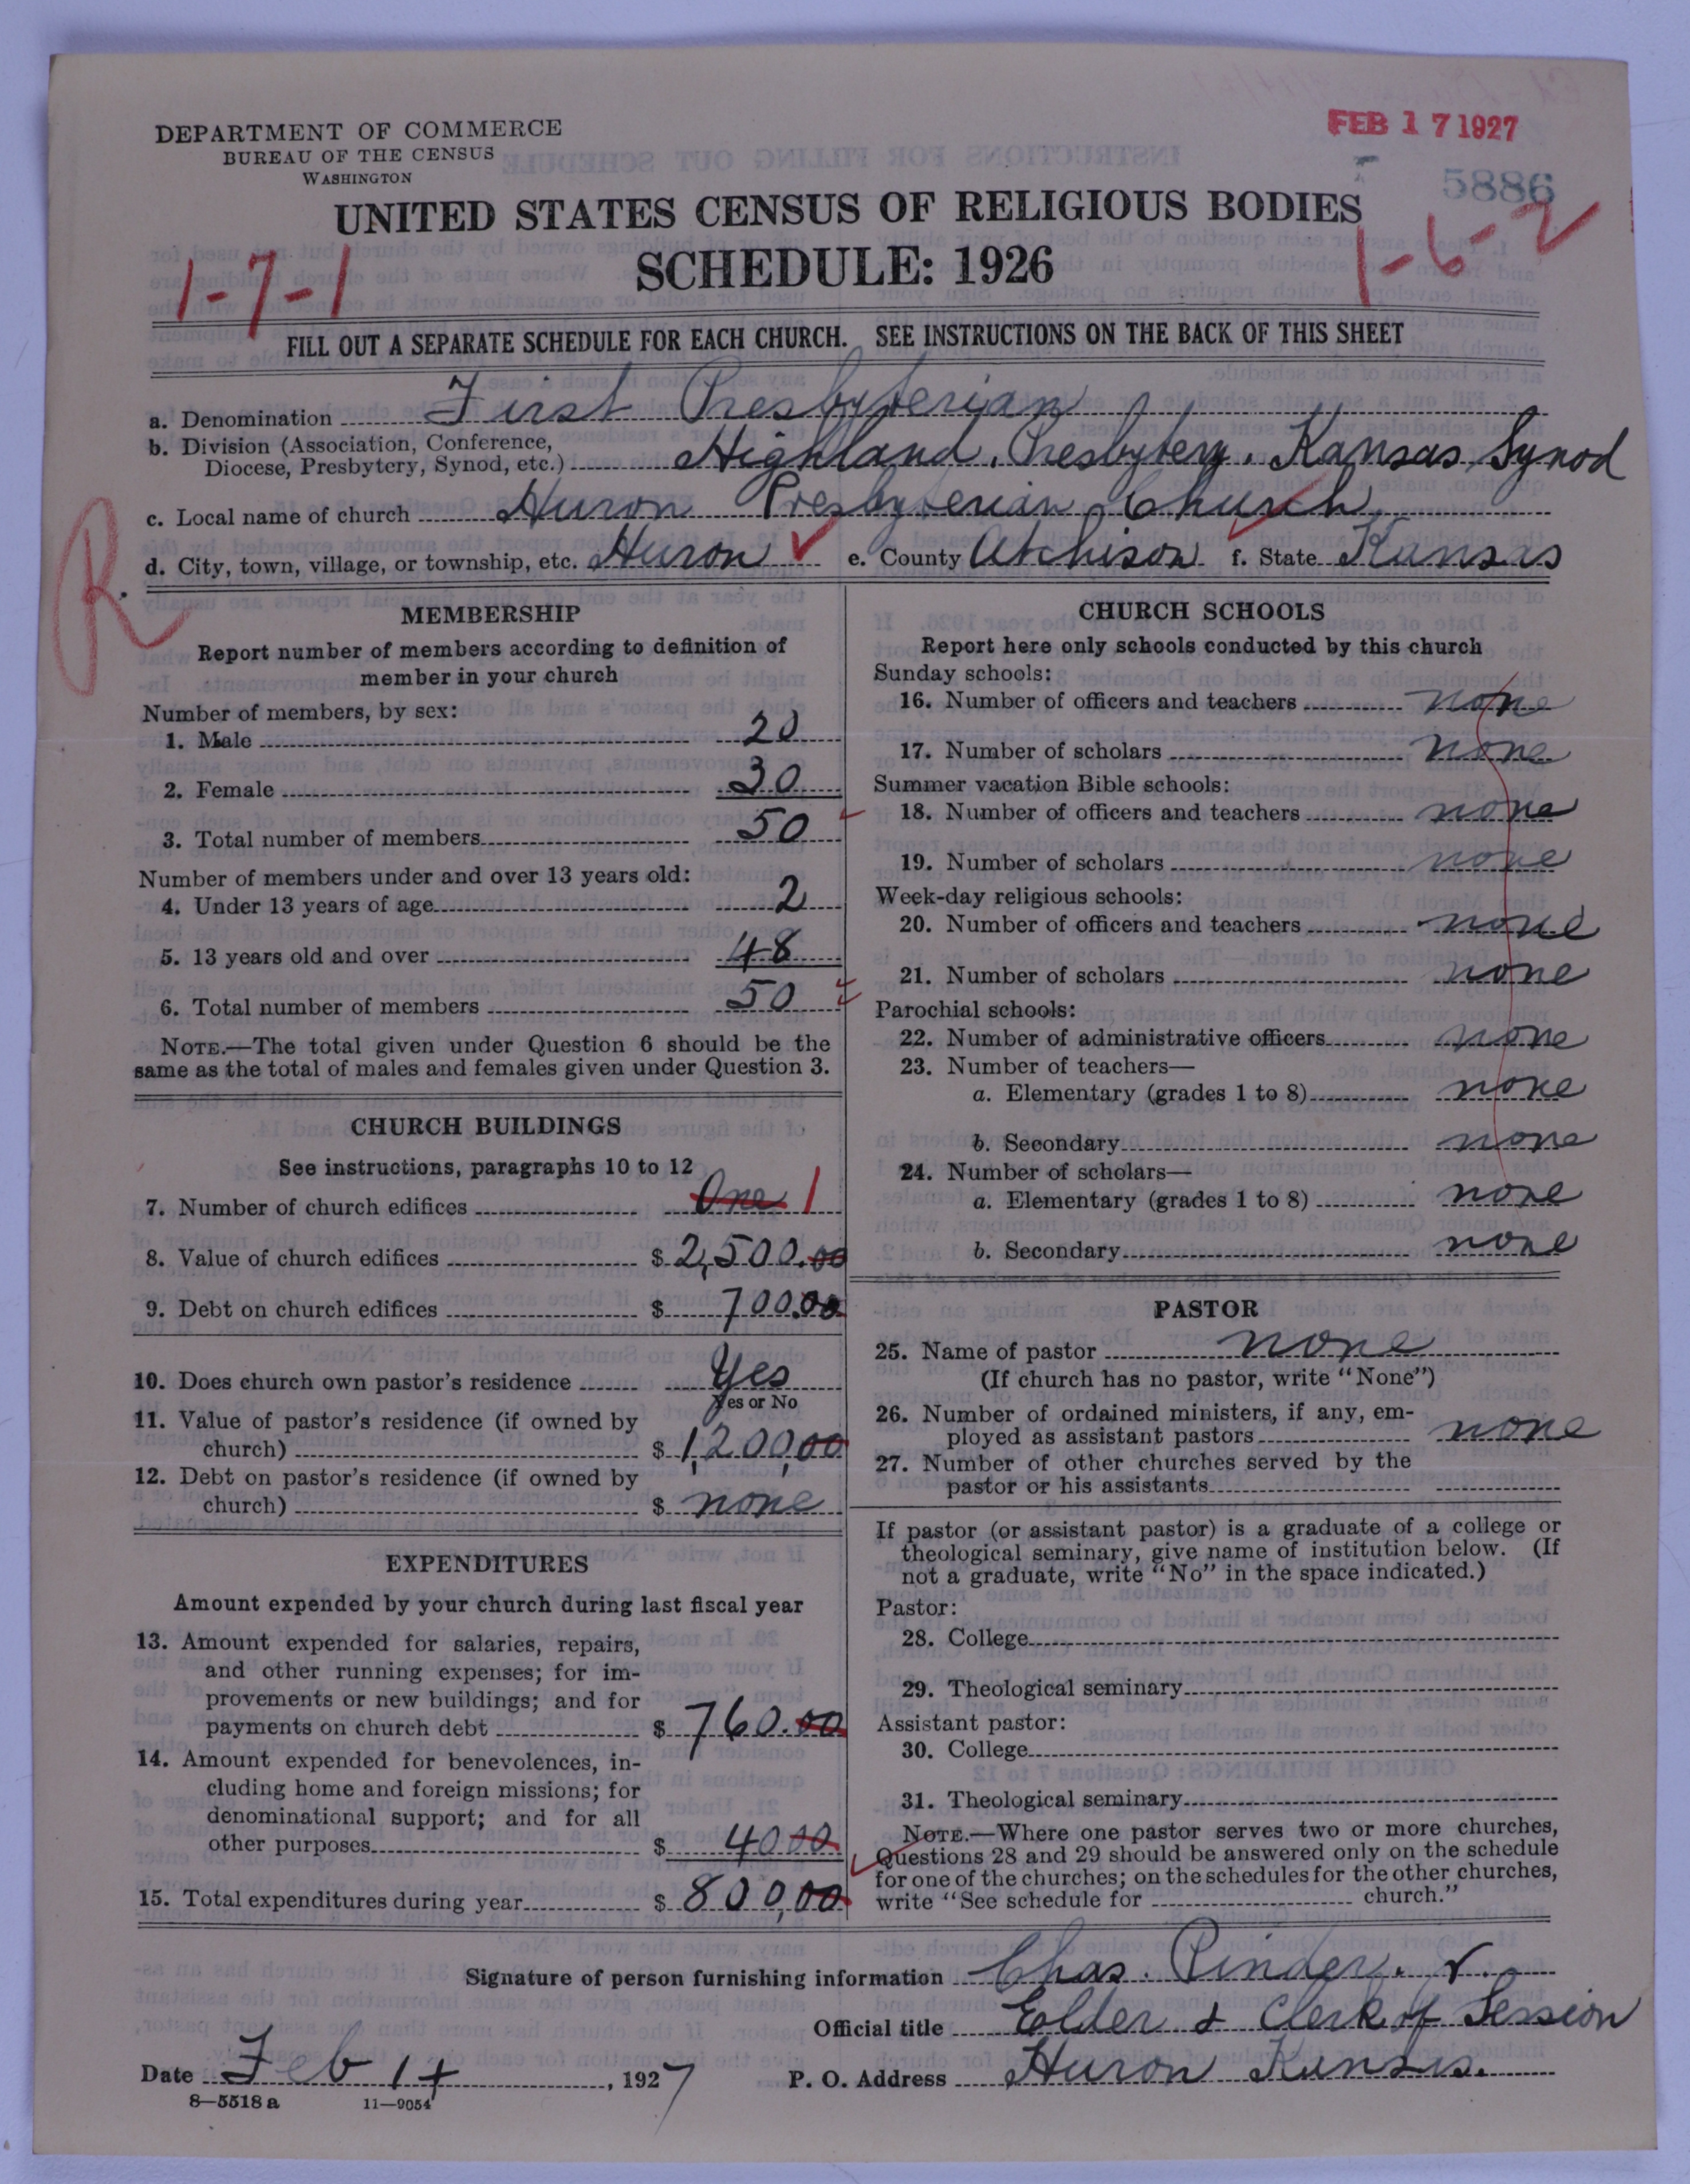 DEPARTMENT OF COMMERCE
BUREAU OF THE CENSUS
WASHINGTON
FEB 17 1927
5886
UNITED STATES CENSUS OF RELIGIOUS BODIES
SCHEDULE: 1926
1-7-1
1-6-2
FILL OUT A SEPARATE SCHEDULE FOR EACH CHURCH. SEE INSTRUCTIONS ON THE BACK OF THIS SHEET
a. Denomination First Presbyterian
b. Division (Association, Conference,
Diocese, Presbytery, Synod, etc.) Highland. Presbytery. Kansas Synod
c. Local name of church Huron Presbyterian Church
d. City, town, village, or township, etc. Huron e. County Atchison f. State Kansas
R.
MEMBERSHIP
Report number of members according to definition of
member in your church
Number of members, by sex:
1. Male 20
2. Female 30
3. Total number of members 50
Number of members under and over 13 years old:
4. Under 13 years of age 2
5. 13 years old and over 48
6. Total number of members 50
NOTE.—The total given under Question 6 should be the
same as the total of males and females given under Question 3.
CHURCH BUILDINGS
See instructions, paragraphs 10 to 12
7. Number of church edifices One 1
8. Value of church edifices $ 2,500.00
9. Debt on church edifices $ 700.00
10. Does church own pastor's residence Yes
Yes or No
11. Value of pastor's residence (if owned by
church) $ 1,200,00
12. Debt on pastor's residence (if owned by
church) $ none
EXPENDITURES
Amount expended by your church during last fiscal year
13. Amount expended for salaries, repairs,
and other running expenses; for im-
provements or new buildings; and for
payments on church debt $ 760.00
14. Amount expended for benevolences, in-
cluding home and foreign missions; for
denominational support; and for all
other purposes $ 40 00
15. Total expenditures during year $ 800,00
CHURCH SCHOOLS
Report here only schools conducted by this church
Sunday schools:
16. Number of officers and teachers none
17. Number of scholars none
Summer vacation Bible schools:
18. Number of officers and teachers none
19. Number of scholars none
Week-day religious schools:
20. Number of officers and teachers none
21. Number of scholars none
Parochial schools:
22. Number of administrative officers none
23. Number of teachers—
a. Elementary (grades 1 to 8) none
b. Secondary none
24. Number of scholars—
a. Elementary (grades 1 to 8) none
b. Secondary none
PASTOR
25. Name of pastor none
(If church has no pastor, write "None")
26. Number of ordained ministers, if any, em-
ployed as assistant pastors none
27. Number of other churches served by the
pastor or his assistants
If pastor (or assistant pastor) is a graduate of a college or
theological seminary, give name of institution below. (If
not a graduate, write "No" in the space indicated.)
Pastor:
28. College
29. Theological seminary
Assistant pastor:
30. College
31. Theological seminary
NOTE.—Where one pastor serves two or more churches,
Questions 28 and 29 should be answered only on the schedule
for one of the churches; on the schedules for the other churches,
write "See schedule for church."
Signature of person furnishing information Chas. Pinder.
Official title Elder & Clerk of Session
Date Feb 14, 1927 P. O. Address Huron Kansas.
8—5518 a 11—9054